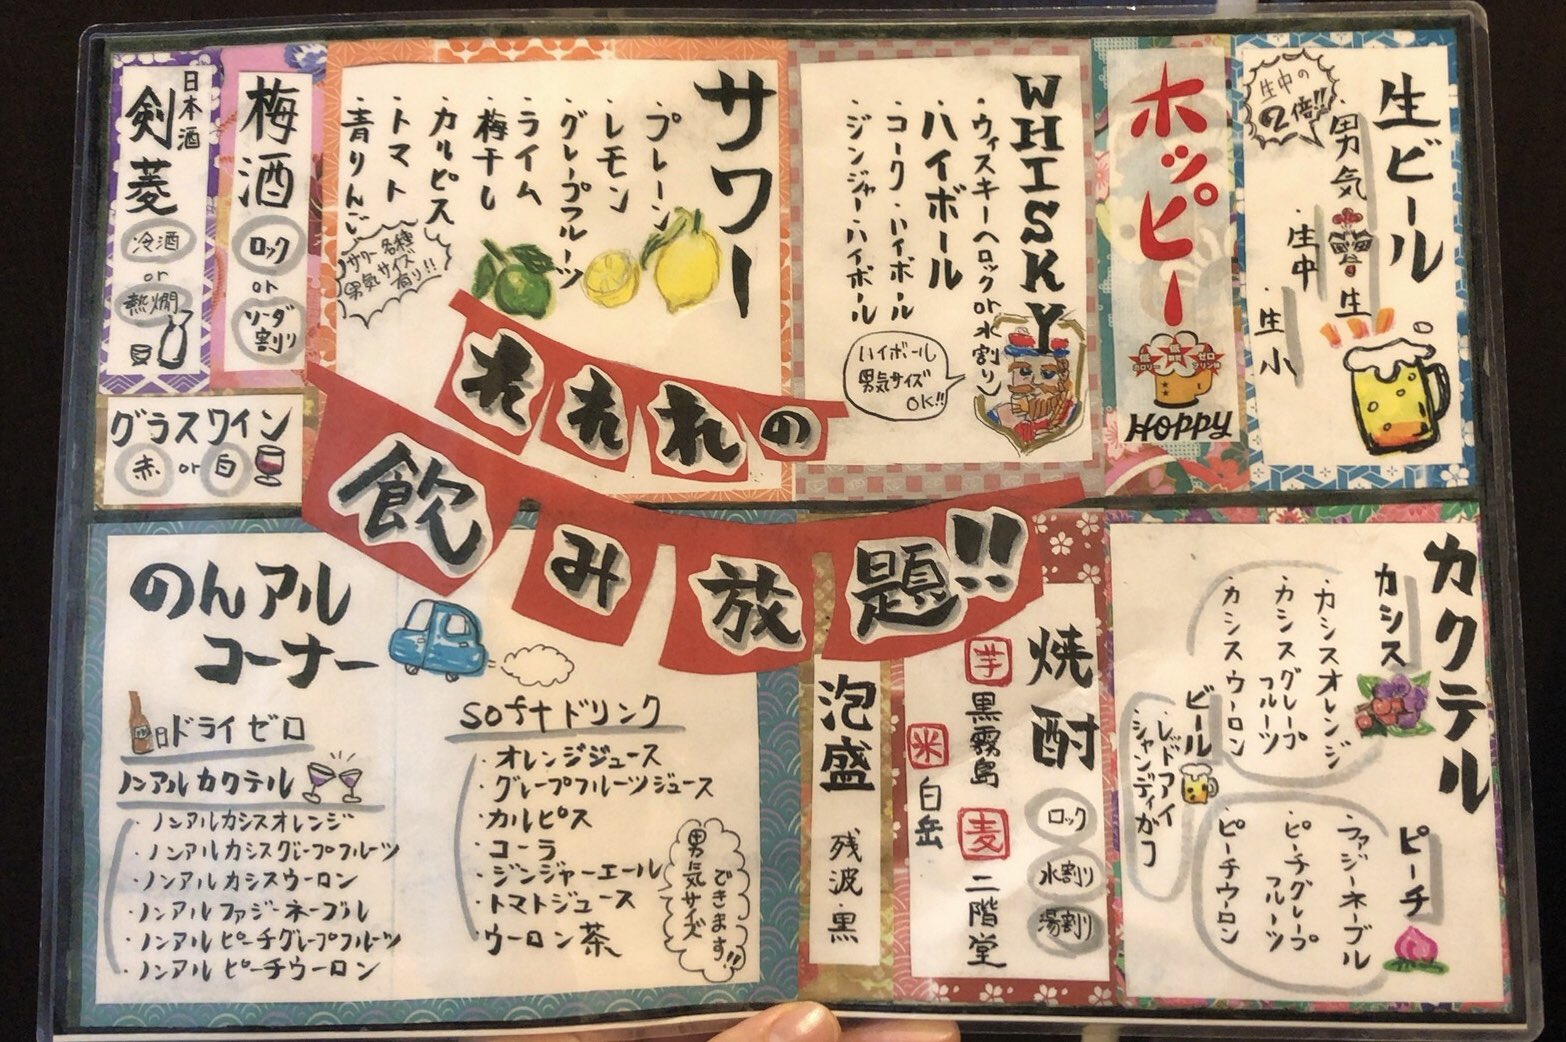 生ビール
生中の
2倍!!
・男気生
・生中
・生小
ホッピー
HOPPY
WHISKY
・ウィスキー(ロックor水割り)
・ハイボール
・コーク・ハイボール
・ジンジャー・ハイボール
ハイボール
男気サイズ
OK!!
サワー
・プレーン
・レモン
・グレープフルーツ
・ライム
・梅干し
・カルピス
・トマト
・青りんご
サワー各種
男気サイズ
有り!!
梅酒
ロック
or
ソーダ
割り
日本酒
剣菱
冷酒
or
熱燗
グラスワイン
赤 or 白
の
飲み放題!!
カクテル
カシス
・カシスオレンジ
・カシスグレープ
フルーツ
・カシスウーロン
ピーチ
・ファジーネーブル
・ピーチグレープ
フルーツ
・ピーチウーロン
ビール
・レッドアイ
・シャンディガフ
焼酎
ロック
水割り
湯割り
芋 黒霧島
麦 二階堂
米 白岳
泡盛
残波・黒
のんアル
コーナー
ドライゼロ
ノンアルカクテル
・ノンアルカシスオレンジ
・ノンアルカシスグレープフルーツ
・ノンアルカシスウーロン
・ノンアルファジーネーブル
・ノンアルピーチグレープフルーツ
・ノンアルピーチウーロン
softドリンク
・オレンジジュース
・グレープフルーツジュース
・カルピス
・コーラ
・ジンジャーエール
・トマトジュース
・ウーロン茶
男気サイズ
できます!!